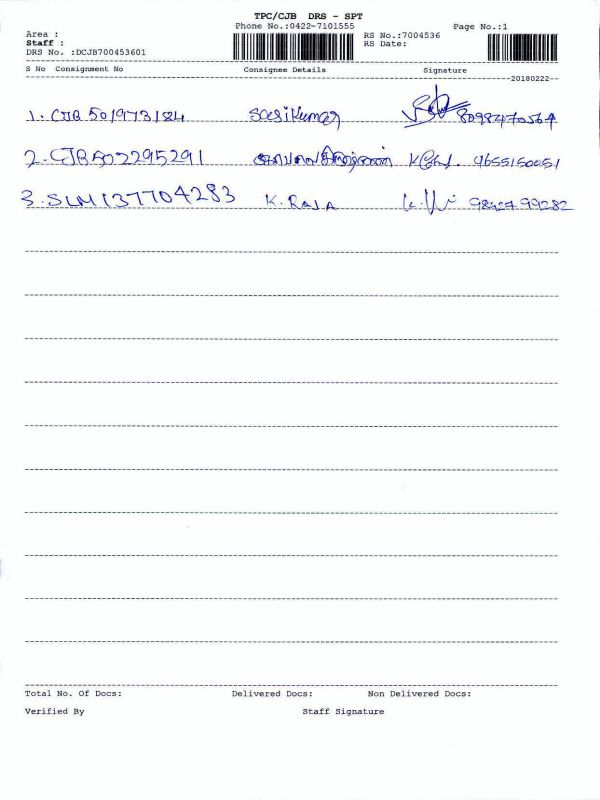 TPC/CJB DRS - SPT
Phone No.:0422-7101555
Page No.:1
Area :
RS No.:7004536
Staff :
RS Date:
DRS No. :DCJB700453601
S No Consignment No Consignee Details Signature
20180222
1. CJB 501973184 SasiKumar 8098470564
2. CJB5022995291 9655150051
3. SLM137704283 K. RAJA 9842499282
Total No. Of Docs: Delivered Docs: Non Delivered Docs:
Verified By Staff Signature